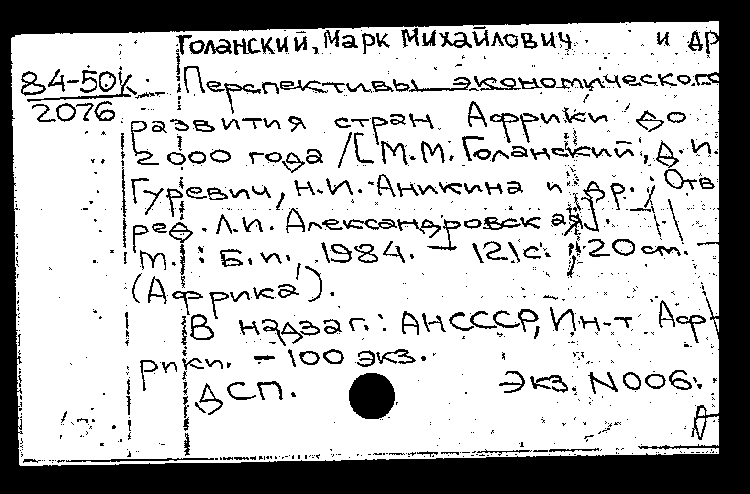 Голанский, Марк Михайлович и др
84-50к Перспективы экономического
2076
развития стран Африки до
2000 года /[М.М. Голанский, Д.П.
Гуревич, Н.И. Аникина и др.; Отв
ред. Л.И. Александровская].
М. : Б.и., 1984. - 121с. 20 см. -
(Африка).
В надзаг.: АНСССР, Ин-т Аф-
рики. - 100 экз.
ДСП. Экз. N006.